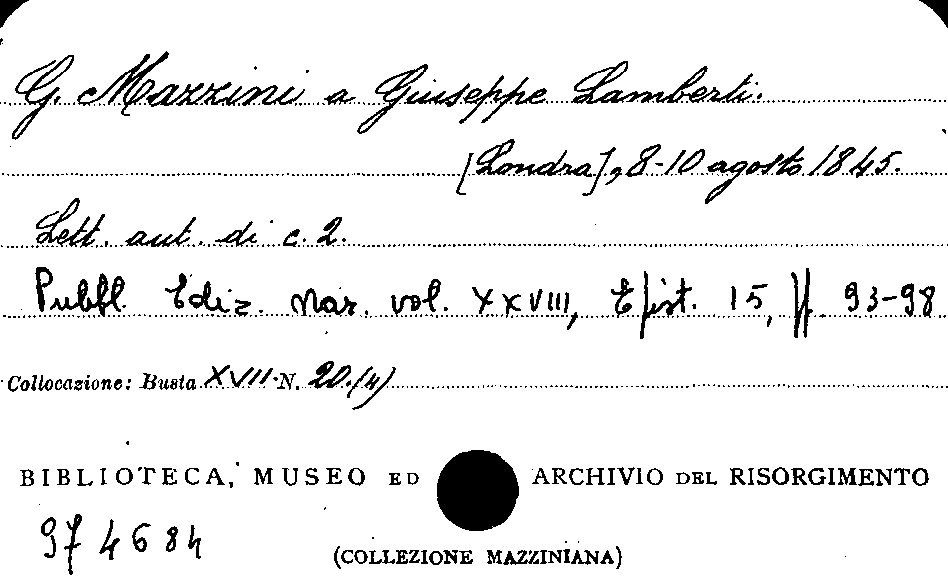 G. Mazzini a Giuseppe Lamberti.
[Londra], 8-10 agosto 1845.
Lett. aut. di c. 2.
Pubbl. Ediz. Naz. vol. XXVIII, Epist. 15, pp. 93-98
Collocazione: Busta XVII N. 20.(4)
BIBLIOTECA, MUSEO ED ARCHIVIO DEL RISORGIMENTO
974684
(COLLEZIONE MAZZINIANA)